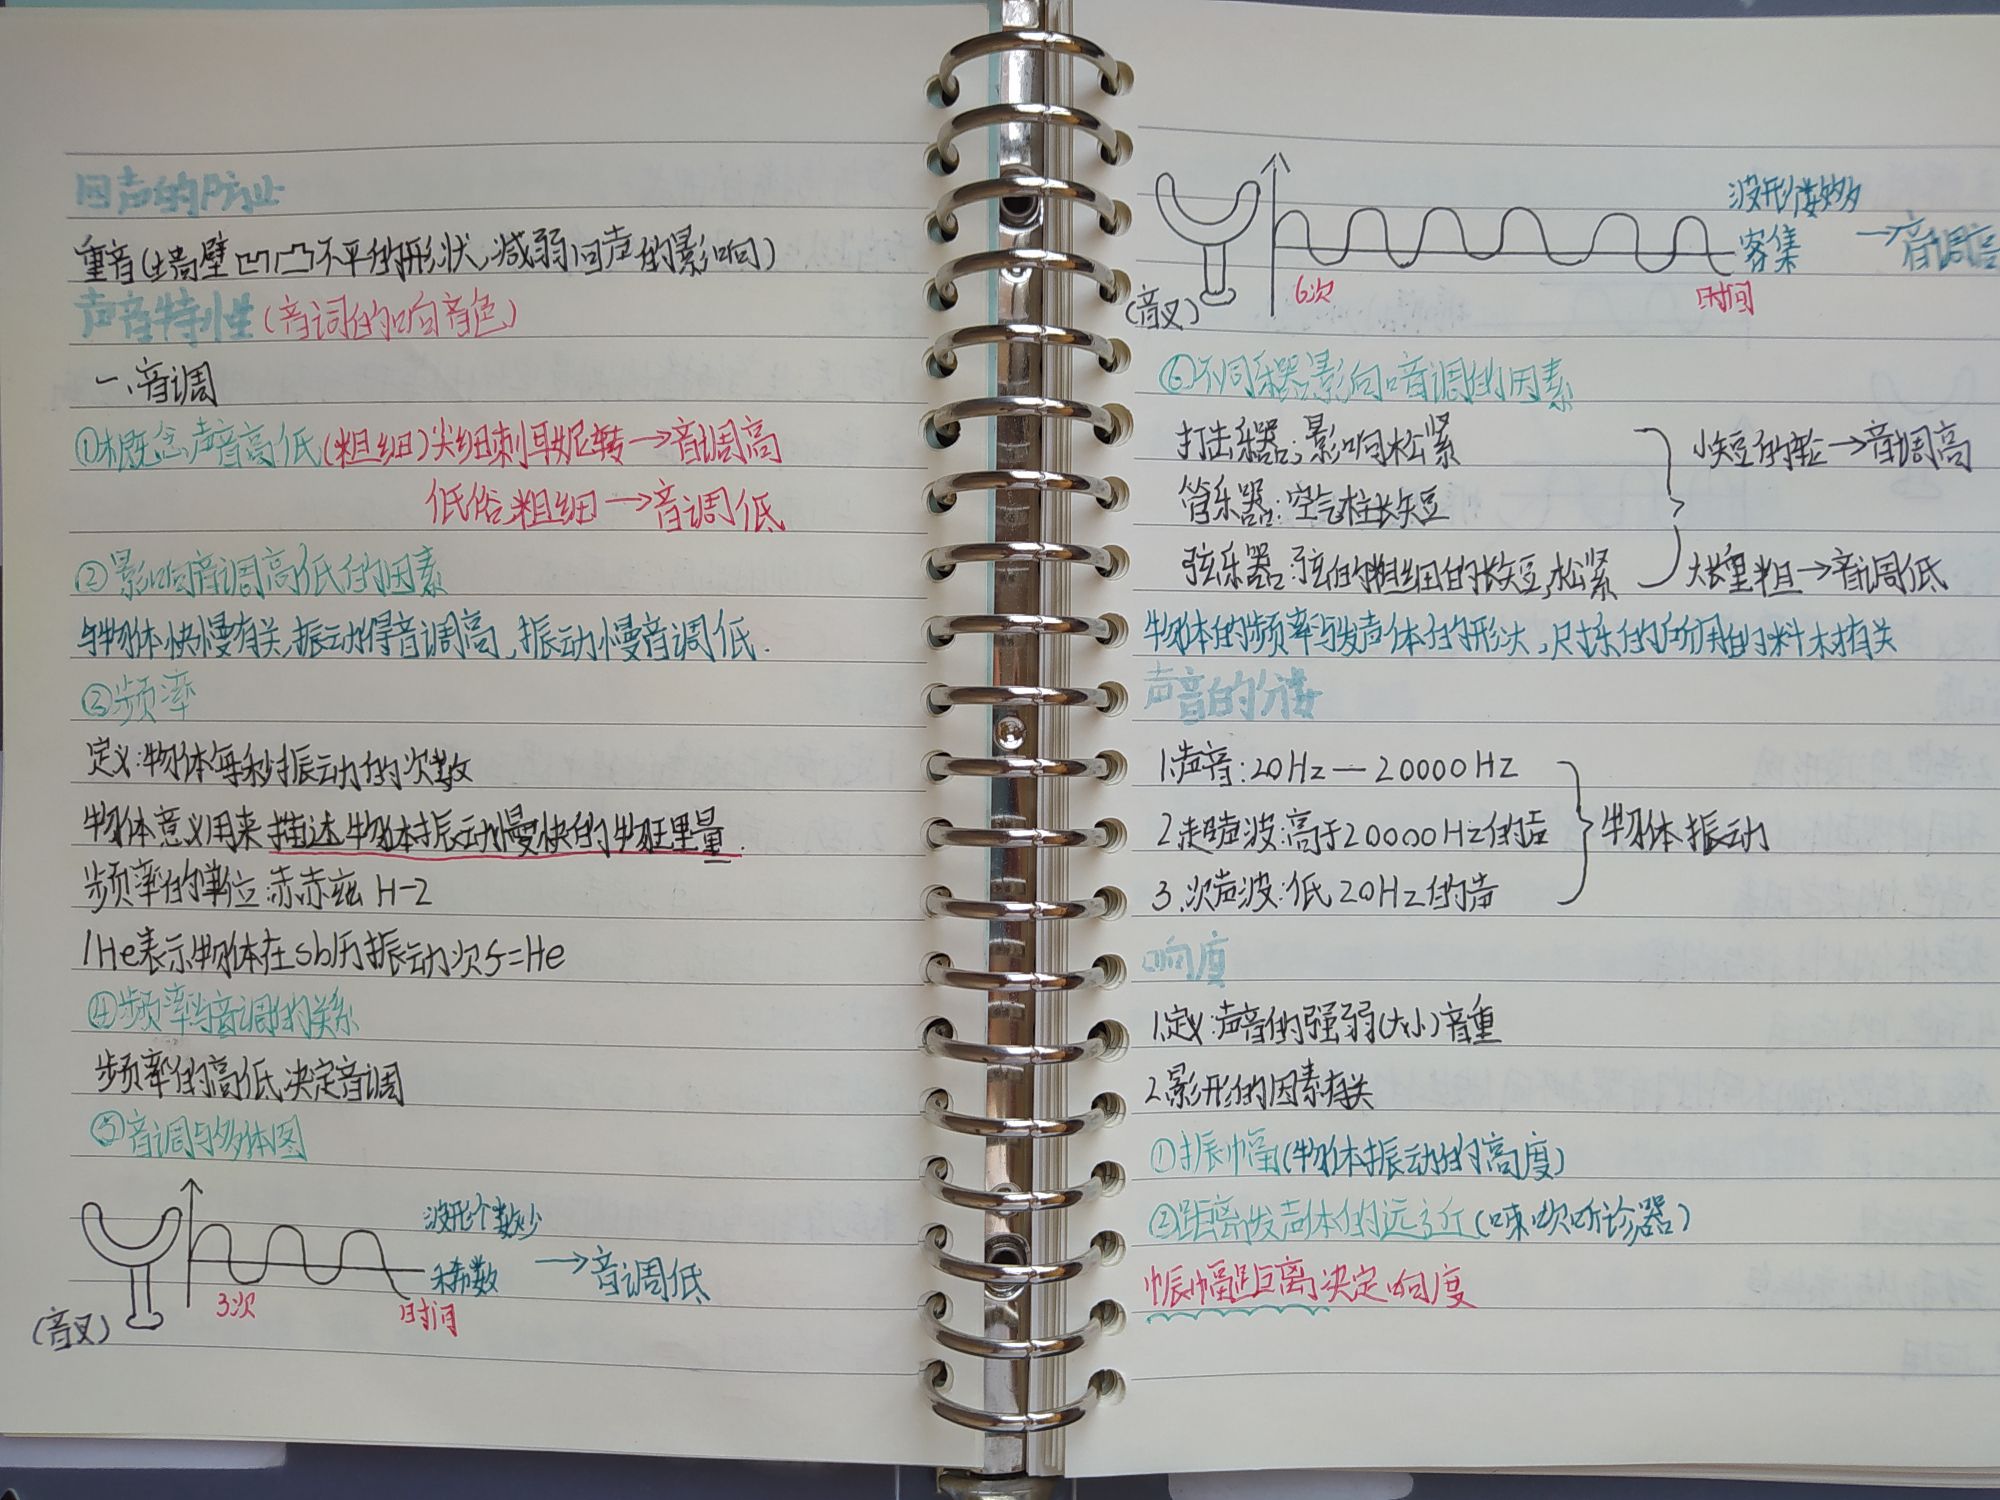 回声的防止
重音(墙壁凹凸不平的形状,减弱回声的影响)
声音特性(音调的响音色)
一、音调
①概念声音高低(粗细)尖细刺耳 转→音调高
低俗粗细→音调低
②影响音调高低的因素
与物体快慢有关,振动得音调高,振动慢音调低.
③频率
定义:物体每秒振动的次数
物体意义用来描述物体振动慢快的物理量.
频率的单位:赤赤兹 H-2
1He表示物体在sb历振动次5=He
④频率与音调的关系
频率的高低决定音调
⑤音调与多体图
波形个数少
稀数 →音调低
(音叉) 3次 时间
波形个数多
密集 →音调高
(音叉) 6次 时间
⑥不同乐器影响音调的因素
打击乐器;影响松紧
管乐器:空气柱长短
弦乐器:弦的粗细的长短,松紧
小短的轻→音调高
大长重粗→音调低
物体的频率与发声体的形状,尺 的所用的料材有关
声音的分类
1.声音:20Hz—20000HZ
2.超声波:高于20000Hz的声
3.次声波:低20Hz的声
物体振动
响度
1.定义:声音的强弱(大小)音重
2.影形的因素有关
①振幅(物体振动的高度)
②距离发声体的远近( 听诊器)
振幅距离决定响度